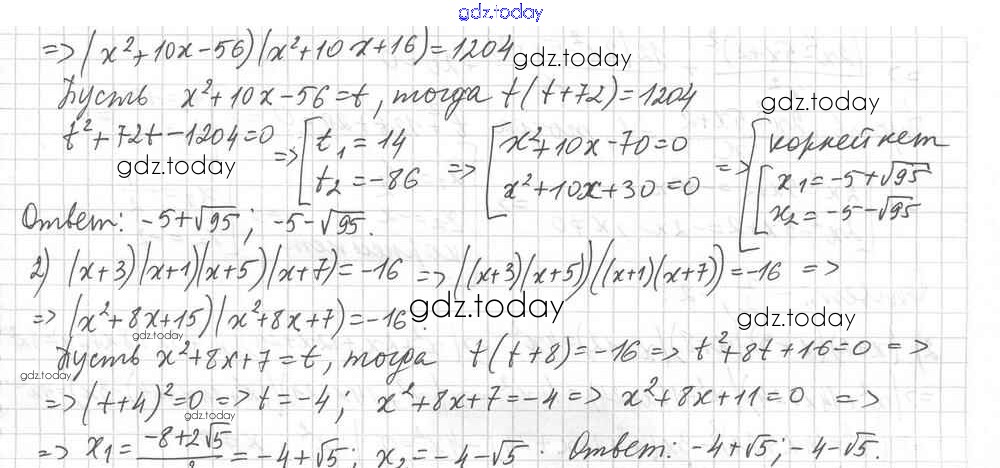 gdz.today
=> (x²+10x-56)(x²+10x+16)=1204
gdz.today
Пусть x²+10x-56=t, тогда t(t+72)=1204
gdz.today
t²+72t-1204=0 => [t₁=14 t₂=-86 => [x²+10x-70=0 x²+10x+30=0 => [корней нет [x₁=-5+√95 x₂=-5-√95
gdz.today
Ответ: -5+√95; -5-√95.
2) (x+3)(x+1)(x+5)(x+7)=-16 => ((x+3)(x+5))((x+1)(x+7))=-16 =>
=> (x²+8x+15)(x²+8x+7)=-16.
gdz.today
gdz.today
gdz.today
Пусть x²+8x+7=t, тогда t(t+8)=-16 => t²+8t+16=0 =>
gdz.today
=> (t+4)²=0 => t=-4; x²+8x+7=-4 => x²+8x+11=0 =>
gdz.today
=> x₁=(-8+2√5)/2=-4+√5; x₂=-4-√5. Ответ: -4+√5; -4-√5.